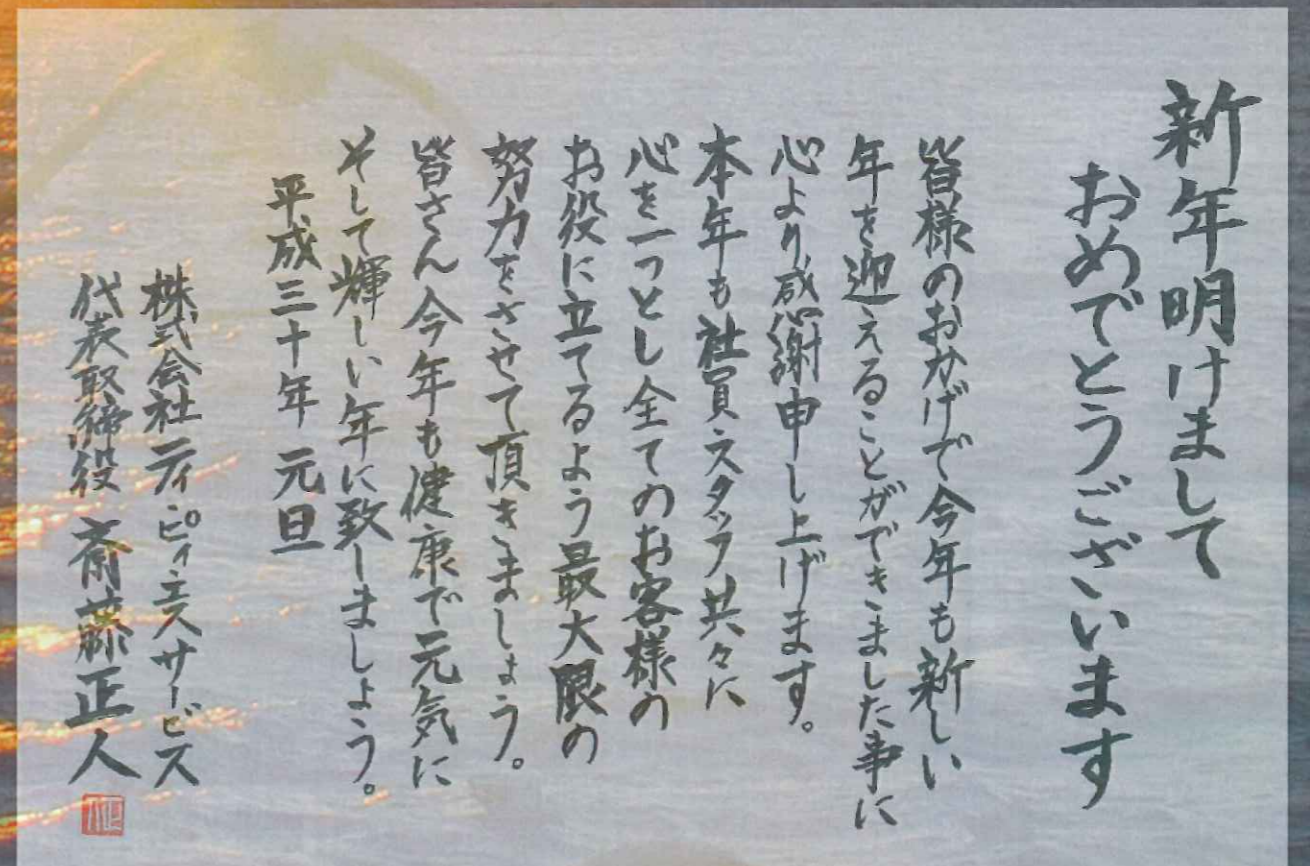 新年明けまして
おめでとうございます
皆様のおかげで今年も新しい
年を迎えることができました事に
心より感謝申し上げます。
本年も社員・スタッフ共々に
心を一つとし全てのお客様の
お役に立てるよう最大限の
努力をさせて頂きましょう。
皆さん今年も健康で元気に
そして輝しい年に致しましょう。
平成三十年 元旦
株式会社 ティ・ピィエスサービス
代表取締役 斎藤正人